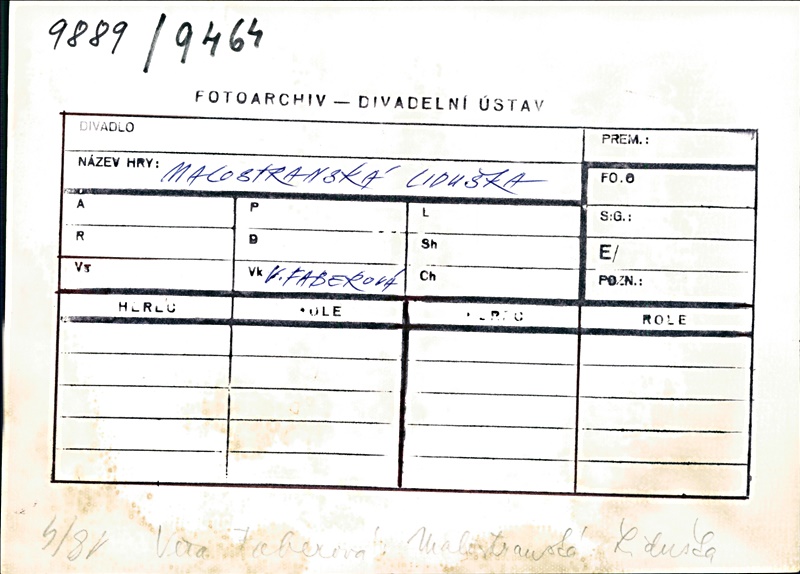 9889 / 9464
FOTOARCHIV — DIVADELNÍ ÚSTAV
DIVADLO
PREM.:
NÁZEV HRY: MALOSTRANSKÁ LIDUŠKA
FO.
A P L
S:G.:
R D Sh
E/
Vs Vk V. FABEROVÁ Ch
POZN.:
HEREC ROLE HEREC ROLE
4/81 Věra Faberová Malostranská Liduška